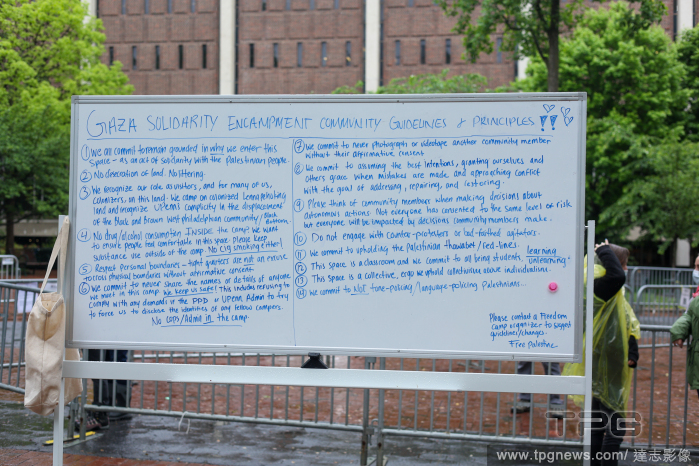 GAZA SOLIDARITY ENCAMPMENT COMMUNITY GUIDELINES & PRINCIPLES
① We all commit to remain grounded in why we enter this
space - as an act of solidarity with the palestinian people.
② No desecration of land. No littering.
③ We recognize our role as visitors, and for many of us,
colonizers, on this land. We camp on colonized Lenni-Lenape
land and recognize UPenn's complicity in the displacement
of the Black and Brown West Philadelphia community/Black
Bottom.
④ No drug/alcohol consumption INSIDE the camp! We want
to ensure people feel comfortable in this space. please keep
substance use outside of the camp. No cig smoking either!
⑤ Respect personal boundaries - tight quarters are not an excuse
to cross physical boundaries without affirmative consent.
⑥ We commit to never share the names or details of anyone
we meet in this camp. We keep us safe! This includes refusing to
comply with any demands of the PPD or UPenn Admin to try
to force us to disclose the identities of any fellow campers.
No cops/Admin in the camp.
⑦ We commit to never photograph or videotape another community member
without their affirmative consent.
⑧ We commit to assuming the best intentions, granting ourselves and
others grace when mistakes are made and approaching conflict
with the goal of addressing, repairing, and restoring.
⑨ Please think of community members when making decisions about
autonomous actions. Not everyone has consented to the same level of risk
but everyone will be impacted by decisions community members make.
⑩ Do not engage with counter-protesters or bad-faithed agitators.
⑪ We commit to upholding the Palestinian thawabet/red-lines.
⑫ This space is a classroom and we commit to all being students, learning
unlearning
⑬ This space is a collective, ergo we uphold collectivism above individualism.
⑭ We commit to NOT tone-policing/language-policing Palestinians...
Please contact a Freedom
camp organizer to suggest
guidelines/changes.
Free Palestine
TPG
www.tpgnews.com/ 達志影像